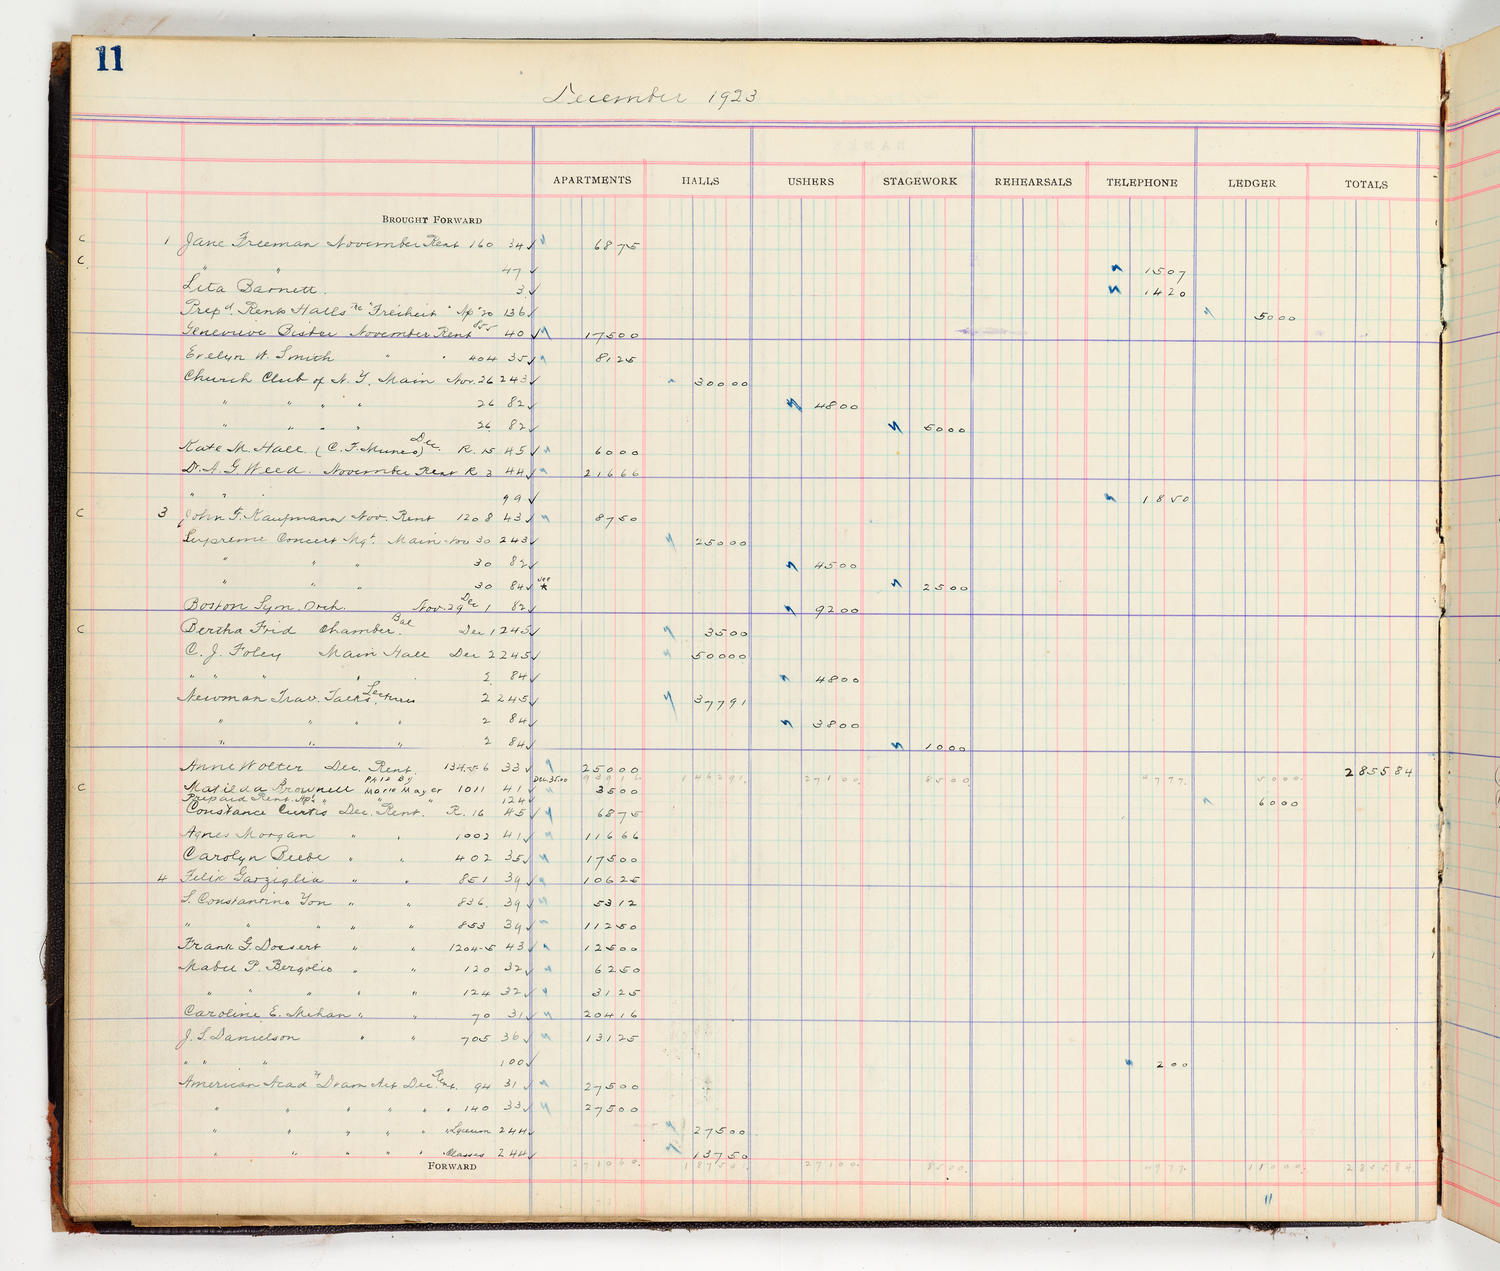 11
December 1923
APARTMENTS HALLS USHERS STAGEWORK REHEARSALS TELEPHONE LEDGER TOTALS
BROUGHT FORWARD
C 1 Jane Freeman November Rent 160 34 ✓ 6875
C. " " 47 ✓ 1507
Lita Barnett. 3 ✓ 1420
Prepd. Rents Halls The "Freiheit" Ap 20 136 ✓ 5000
Genevieve Bisbee November Rent 855 40 ✓ 17500
Evelyn W. Smith " " 404 35 ✓ 8125
Church Club of N.Y. Main Nov. 26 243 ✓ 30000
" " " " 26 82 ✓ 4800
" " " " 26 82 ✓ 5000
Kate M. Hall. (C. F. Munro) Dec. R. 15 45 ✓ 6000
Dr. A. G. Weed. November Rent R 3 44 ✓ 21666
" " 99 ✓ 1850
C 3 John F. Kaufmann Nov. Rent 1208 43 ✓ 8750
Supreme Concert Mgt. Main Nov 30 243 ✓ 25000
" " " 30 82 ✓ 4500
" " " 30 84 ✓ see * 2500
Boston Sym. Orch. Nov. 29 Dec 1 82 ✓ 9200
C Bertha Frid Chamber. Bal Dec 1 245 ✓ 3500
C. J. Foley Main Hall Dec 2 245 ✓ 50000
" " " " 2 84 ✓ 4800
Newman Trav. Talks Lectures 2 245 ✓ 37791
" " " " 2 84 ✓ 3800
" " " 2 84 ✓ 1000
Anne Wolter Dec. Rent. 134-5-6 33 ✓ 25000 285584
Dec. 3500 146291. 27100. 8500. 4777. 5000.
C Matilda Brownell Paid By Marie Mayer 1011 41 ✓ 3500
Prepaid Rent. Ap's " " " 124 ✓ 6000
Constance Curtis Dec. Rent. R. 16 45 ✓ 6875
Agnes Morgan " " 1002 41 ✓ 11666
Carolyn Beebe " " 402 35 ✓ 17500
4 Felix Garziglia " " 851 39 ✓ 10625
S. Constantino Yon " " 836. 39 ✓ 5312
" " " " " 853 39 ✓ 11250
Frank G. Dossert " " 1204-5 43 ✓ 12500
Mabel P. Bergolio " " 120 32 ✓ 6250
" " " " " 124 32 ✓ 3125
Caroline E. Mehan " " 70 31 ✓ 20416
J. S. Danielson " " 705 36 ✓ 13125
" " " 100 ✓ 200
American Acad of Dram Art Dec Rent. 94 31 ✓ 27500
" " " " " " 140 33 ✓ 27500
" " " " " " Lyceum 244 ✓ 27500
" " " " " " Classes 244 ✓ 13750
FORWARD 271060. 187541. 27100. 8500. 4977. 11000. 285584.
11